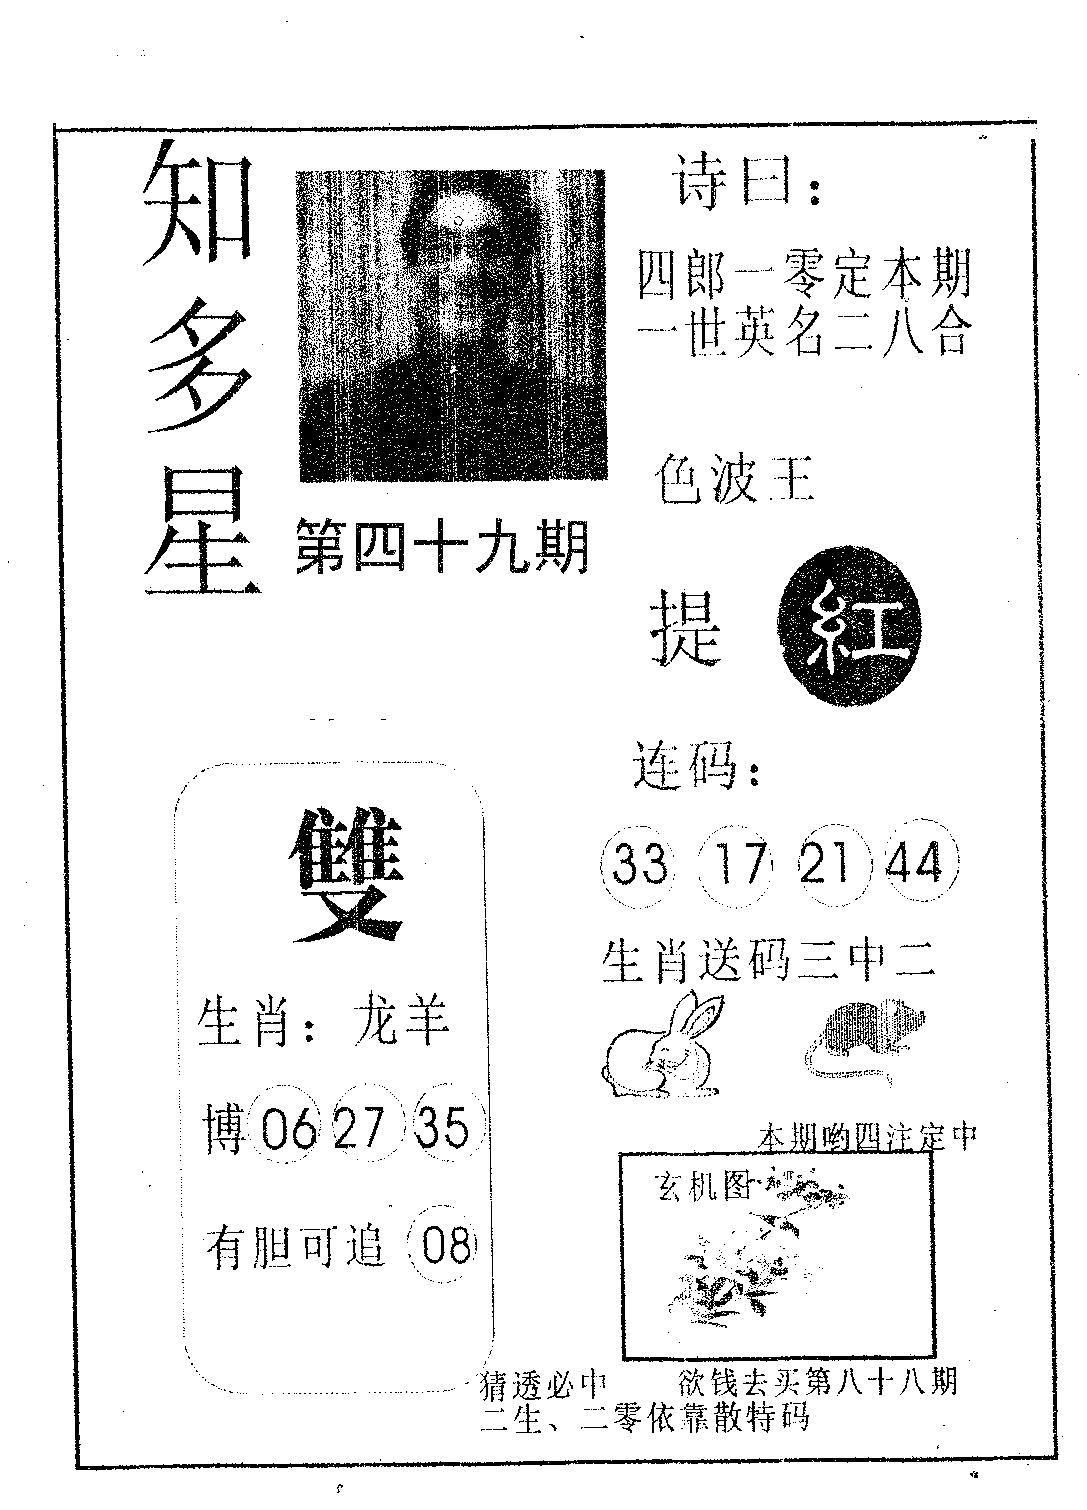 知多星
第四十九期
诗曰：
四郎一零定本期
一世英名二八合
色波王
提 紅
连码：
33 17 21 44
生肖送码三中二
雙
生肖：龙羊
博 06 27 35
有胆可追 08
本期哟四注定中
玄机图
猜透必中 欲钱去买第八十八期
二生、二零依靠散特码